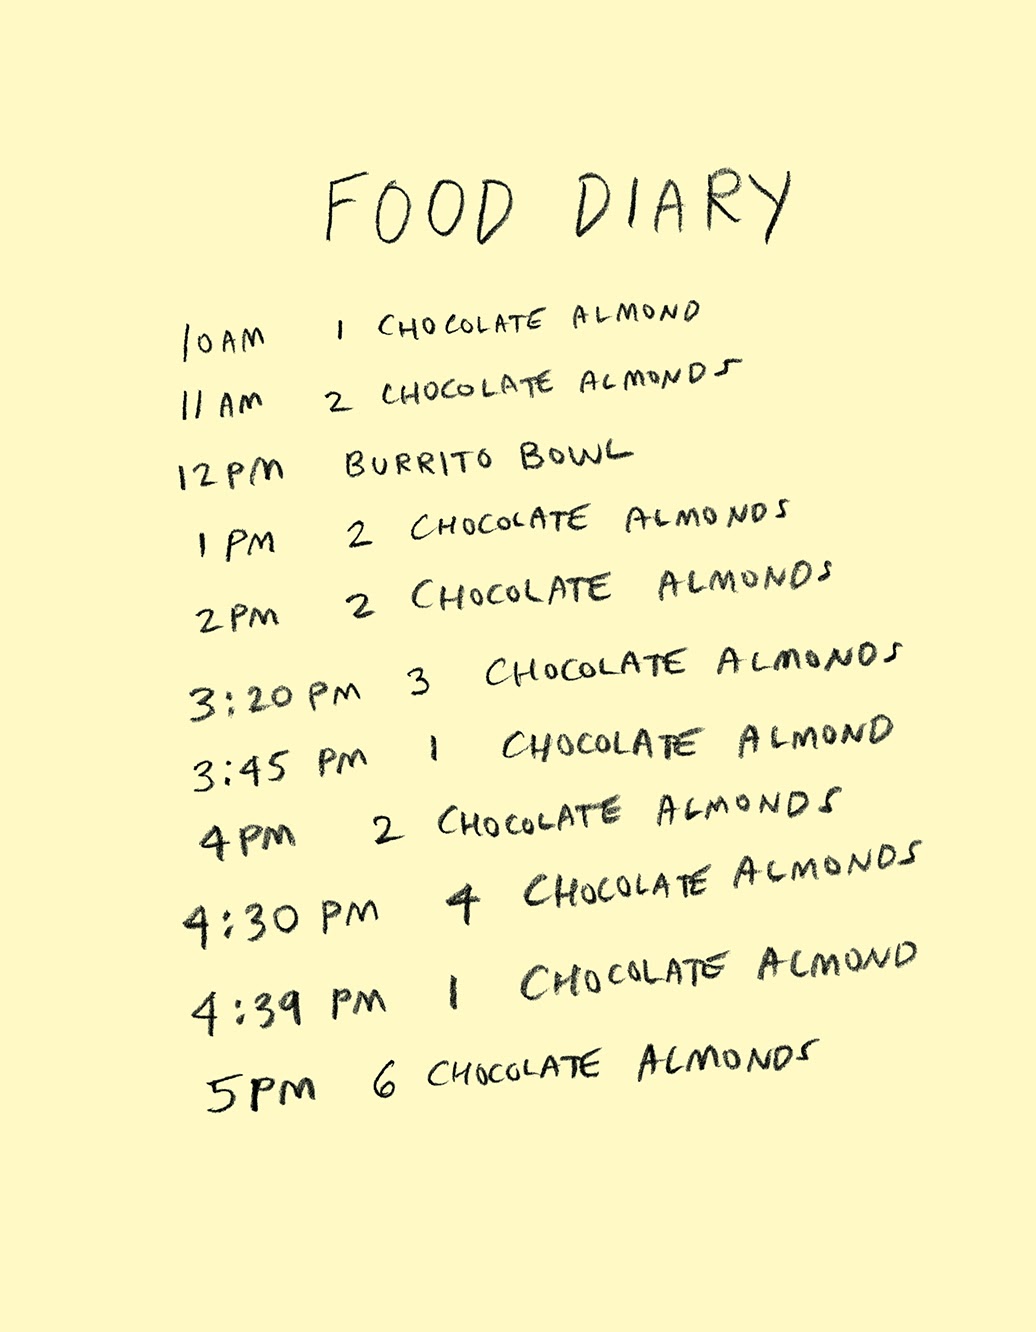 FOOD DIARY
10AM 1 CHOCOLATE ALMOND
11 AM 2 CHOCOLATE ALMONDS
12 PM BURRITO BOWL
1 PM 2 CHOCOLATE ALMONDS
2 PM 2 CHOCOLATE ALMONDS
3:20 PM 3 CHOCOLATE ALMONDS
3:45 PM 1 CHOCOLATE ALMOND
4 PM 2 CHOCOLATE ALMONDS
4:30 PM 4 CHOCOLATE ALMONDS
4:39 PM 1 CHOCOLATE ALMOND
5 PM 6 CHOCOLATE ALMONDS